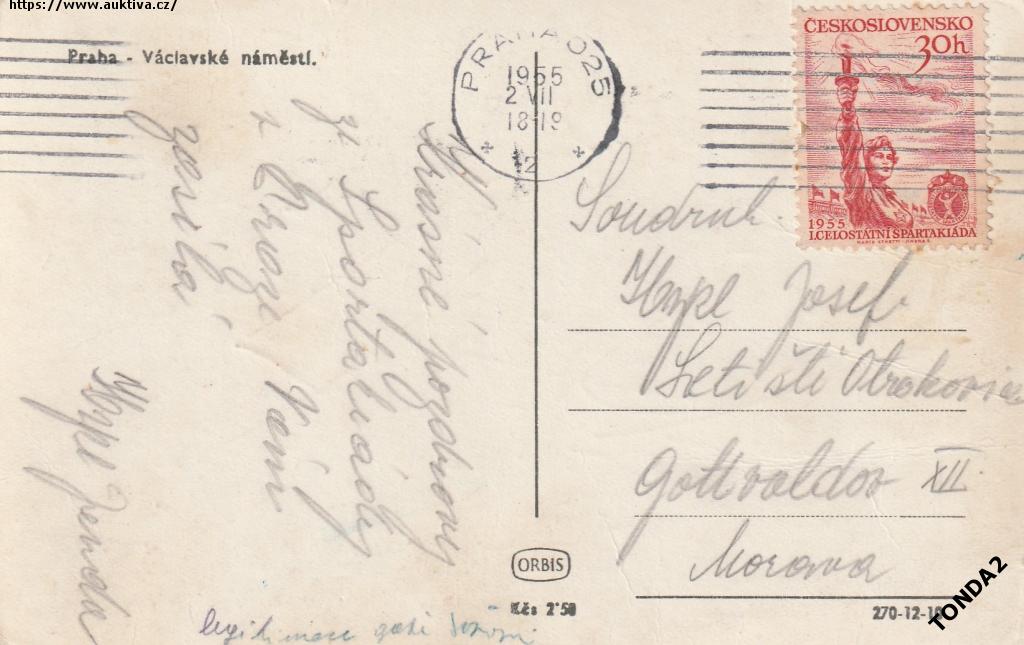 https://www.auktiva.cz/
Praha - Václavské náměstí.
PRAHA 025
1955
2 VII
18-19
12
ČESKOSLOVENSKO
30h
1955
I.CELOSTÁTNÍ SPARTAKIÁDA
krásné pozdravy
ze Sportakiády
z Prahy Vám
zasílá
Jenda
Soudruh
Josef
Letiště Otrokovice
Gottvaldov XII
Morava
ORBIS
Kčs 2'50
270-12-10
TONDA2